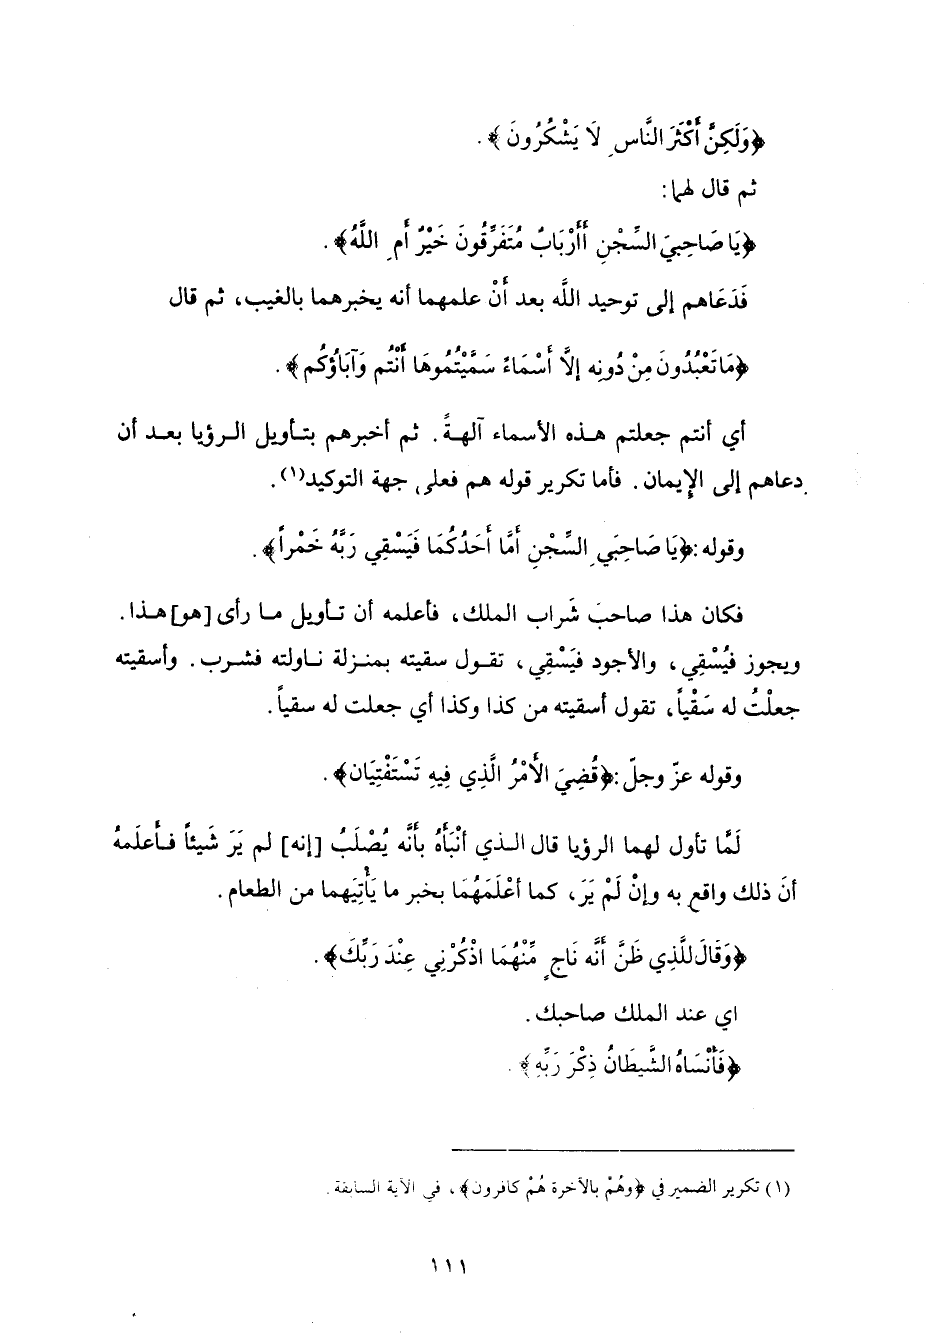 ﴿وَلَكِنَّ أَكْثَرَ النَّاسِ لَا يَشْكُرُونَ﴾.
ثم قال لهما:
﴿يَا صَاحِبَيِ السِّجْنِ أَأَرْبَابٌ مُتَفَرِّقُونَ خَيْرٌ أَمِ اللَّهُ﴾.
فَدَعَاهم إلى توحيد اللَّه بعد أَنْ علمهما أنه يخبرهما بالغيب، ثم قال
﴿مَا تَعْبُدُونَ مِنْ دُونِه إلَّا أَسْمَاءً سَمَّيْتُمُوهَا أَنْتُم وَآبَاؤُكُم﴾.
أي أنتم جعلتم هذه الأسماء آلهةً. ثم أخبرهم بتأويل الرؤيا بعد أن
دعاهم إلى الإيمان. فأما تكرير قوله هم فعلى جهة التوكيد(١).
وقوله: ﴿يَا صَاحِبَيِ السِّجْنِ أَمَّا أَحَدُكُمَا فَيَسْقِي رَبَّهُ خَمْراً﴾.
فكان هذا صاحبَ شَراب الملك، فأعلمه أن تأويل ما رأى [هو] هذا.
ويجوز فيُسْقِي، والأجود فيَسْقِي، تقول سقيته بمنزلة ناولته فشرب. وأسقيته
جعلْتُ له سَقْياً، تقول أسقيته من كذا وكذا أي جعلت له سقياً.
وقوله عزّ وجلّ: ﴿قُضِيَ الأَمْرُ الَّذِي فِيهِ تَسْتَفْتِيَان﴾.
لَمَّا تأول لهما الرؤيا قال الذي أنْبَأَهُ بأنَّه يُصْلَبُ [إنه] لم يَرَ شَيئاً فأعلَمهُ
أنَ ذلك واقع به وإنْ لَمْ يَرَ، كما أعْلَمَهُمَا بخبر ما يَأْتِيَهما من الطعام.
﴿وَقَالَ للَّذِي ظَنَّ أَنَّه نَاجٍ مِّنْهُمَا اذْكُرْنِي عِنْدَ رَبِّكَ﴾.
اي عند الملك صاحبك.
﴿فَأَنْسَاهُ الشَّيطَانُ ذِكْرَ رَبِّهِ﴾.
(١) تكرير الضمير في ﴿وهُمْ بالآخرة هُمْ كافرون﴾، في الآية السابقة.
١١١